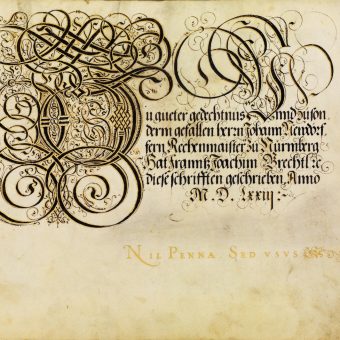 Zu gueter gedechtnus Vnnd Suson
derm gefallen herrn Johann Neudorf
fern Rechenmaister zu Nürmberg
Hat Franntz Joachim Brechtl ꝛc
diese schrifften geschrieben Anno
M. D. Lxxiij:
NIL PENNA SED VSVS